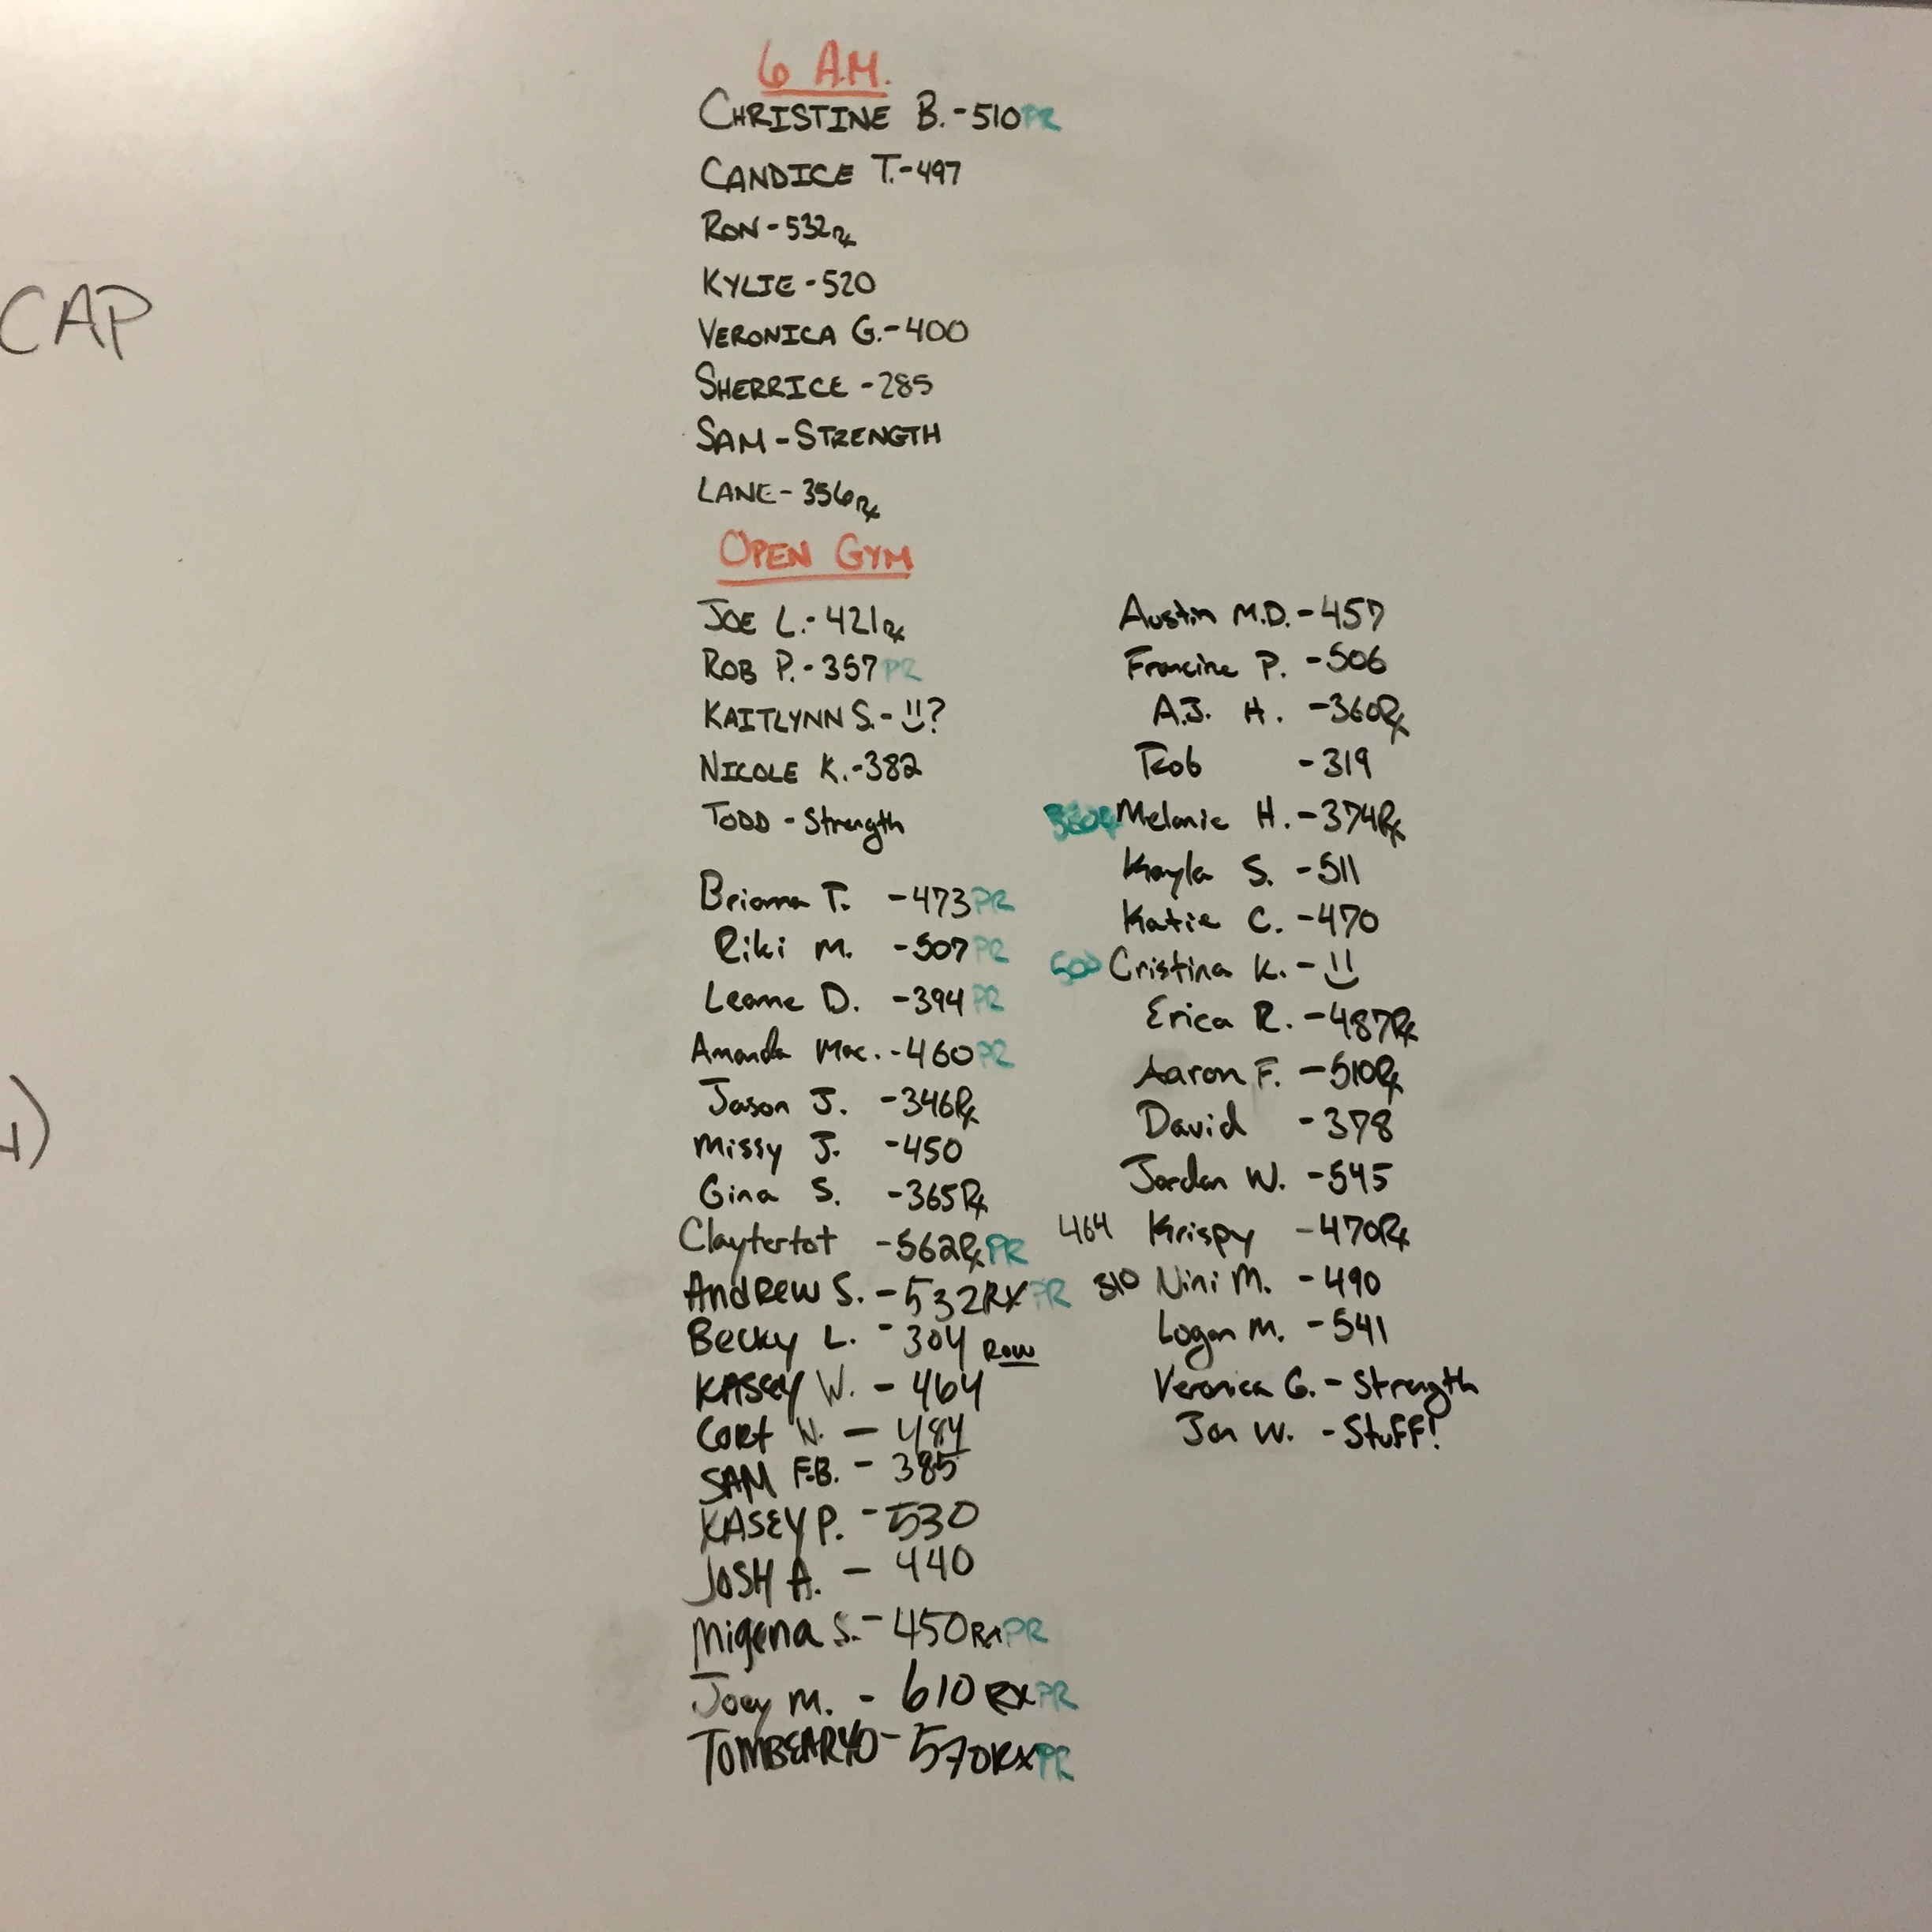 6 A.M.
CHRISTINE B. - 510 PR
CANDICE T. - 497
RON - 532 Rx
CAP
KYLIE - 520
VERONICA G. - 400
SHERRICE - 285
SAM - STRENGTH
LANE - 356 Rx
OPEN GYM
JOE L. - 421 Rx
ROB P. - 357 PR
KAITLYNN S. - ?
NICOLE K. - 382
TODD - Strength
Brianna T. - 473 PR
Riki M. - 507 PR
Leanne D. - 394 PR
Amanda Mac. - 460 PR
Jason J. - 346 Rx
Missy J. - 450
Gina S. - 365 Rx
Claytertot - 562 Rx PR
Andrew S. - 532 RX PR
Becky L. - 304 Row
KASEY W. - 464
Cort N. - 484
SAM F.B. - 385
KASEY P. - 530
JOSH A. - 440
Migena S. - 450 Rx PR
Joey M. - 610 RX PR
TOMBEARYO - 570 RX PR
Austin M.D. - 457
Francine P. - 506
A.J. H. - 360 Rx
Rob - 319
Melanie H. - 374 Rx
Kayla S. - 511
Katie C. - 470
Cristina K. -
Erica R. - 487 Rx
Aaron F. - 510 Rx
David - 378
Jordan W. - 545
464 Krispy - 470 Rx
310 Nini M. - 490
Logan M. - 541
Veronica G. - Strength
Jon W. - Stuff!